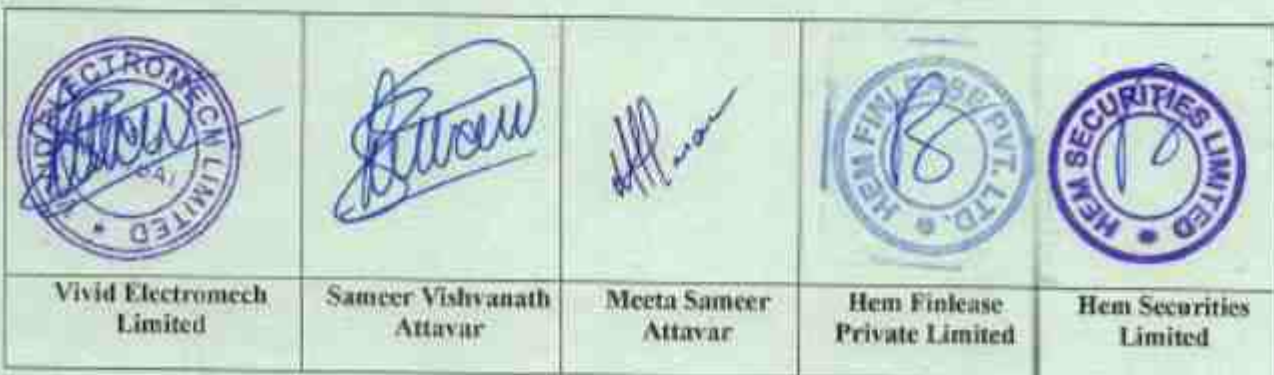 ELECTROMECH LIMITED
HEM FINLEASE PVT. LTD.
HEM SECURITIES LIMITED
Vivid Electromech
Limited
Sameer Vishvanath
Attavar
Meeta Sameer
Attavar
Hem Finlease
Private Limited
Hem Securities
Limited